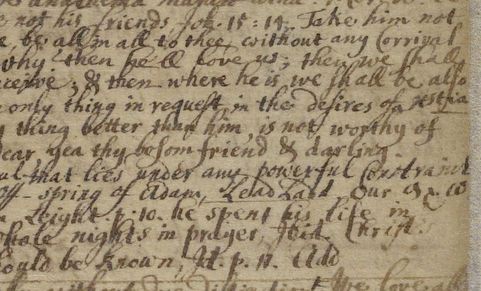 not his friends Joh. 15:14. Take him not
be all in all to thee, without any Corrival
why then he'll love us; then we shall
receive; & then where he is we shall be also
only thing in request, in the desires of a
thing better than him, is not worthy of
dear, yea thy bosom friend & darling.
that lies under any powerful Constraint
off-spring of Adam, Our
p: 10. he spent his life in
whole nights in prayer, Ibid. Christ
could be known, Id. p. 11. Add
without We love all